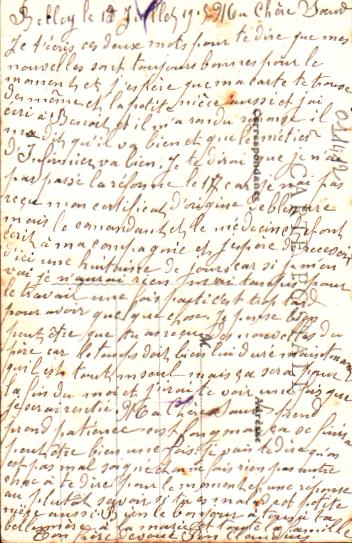 Belley le 18 Juillet 1915 Ma Chère Sœur
Je t'écris ces deux mots pour te dire que mes
nouvelles sont toujours bonnes pour le
moment et j'espère que ma carte te trouve
de même et la petite nièce aussi et j'ai
écri à Benoit et il m'a rendu réponse il
m'a dit qu'il va bien et que le métier
d'Infirmier va bien. Je te dirai que je n'ai
pas passé la réforme le 17 car je n'ai pas
reçu mon certificat d'origine de blessure
mais le commandant et le médecin font
écrit à ma compagnie et j'espère le recevoir
d'ici une huitaine de jours car si j'm'en
vai je n'aurai rien
le travail une fois parti c'est trop tard
pour avoir quelque chose. Je pense bien
peut être que tu as reçu des nouvelles du
père car le temps doit bien lui durer maintenant
qu'il est tout seul mais ça sera pour
la fin du mois et j'irai te voir une fois que
je serai rentré Ma Chère Sœur prend
prend patience c'est long mais ça se finira
peut être bien une fois je vais te dire qu'on
est pas mal soigné car je fais rien pas autre
chose à te dire pour le moment une réponse
au plutôt savoir si tu es malade et petite
nièce aussi Bien le bonjour à tous ta
belle mère à la marie et toute la famille
Ton frère dévoué Jean Claudius
Correspondance
CARTE POSTALE
Adresse